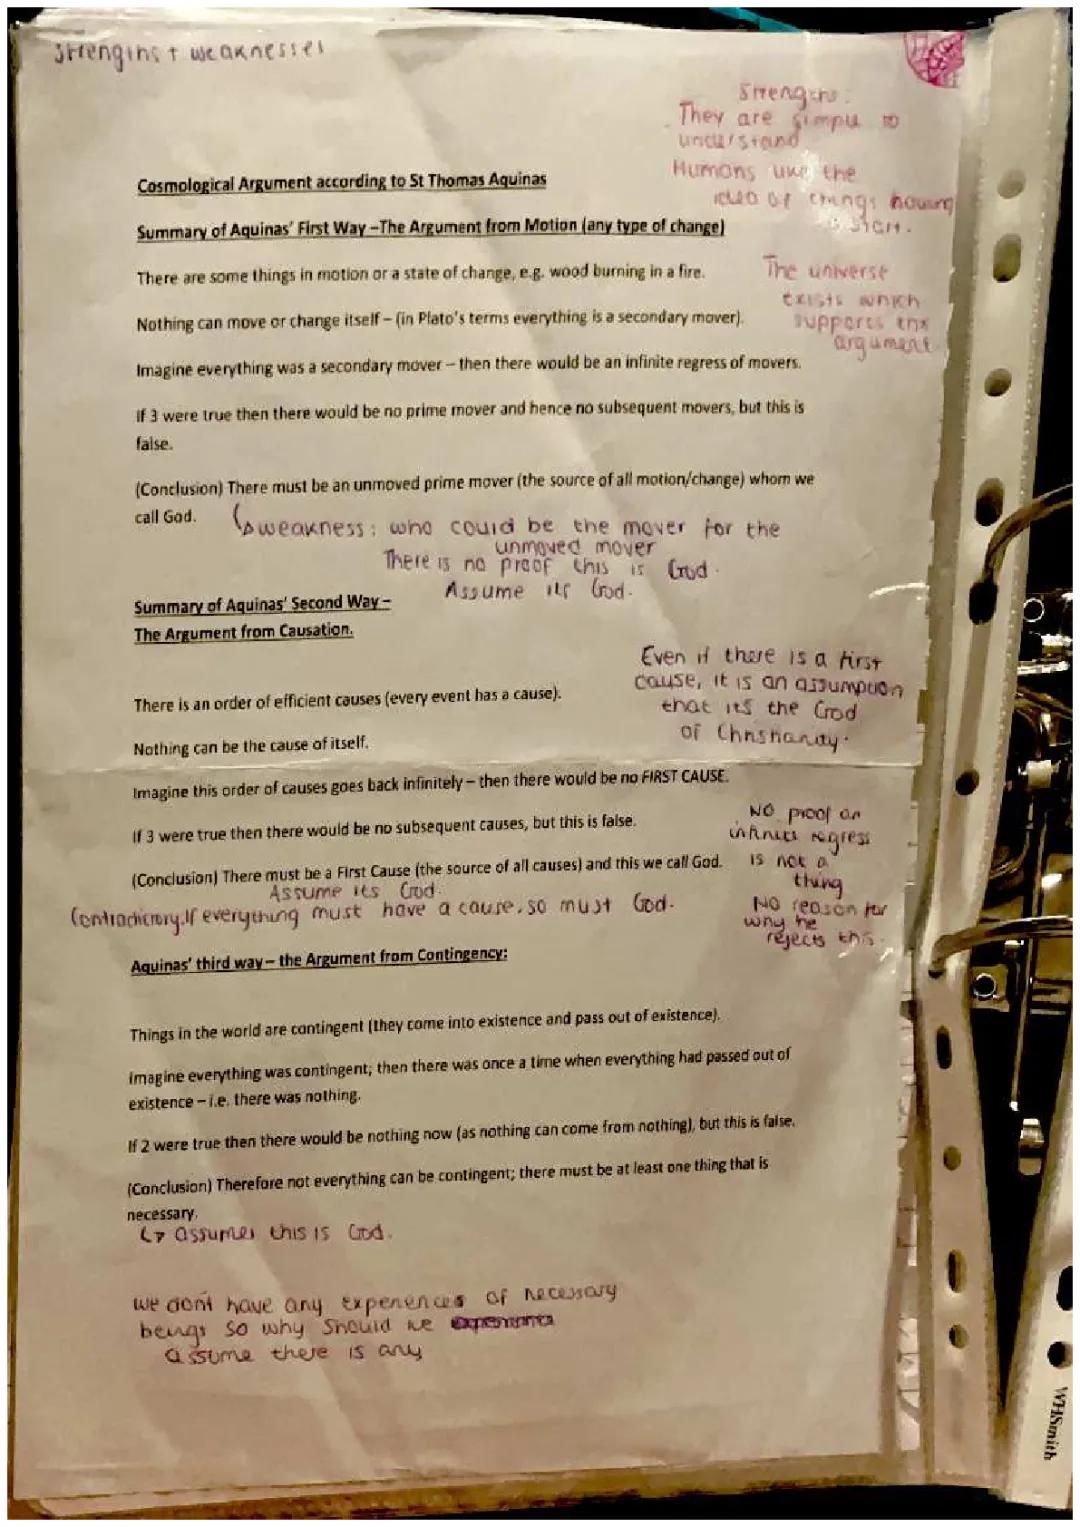 Strengths + weaknesses
Strengths:
They are simple to
understand
Humans like the
idea of things having
a start.
The universe
exists which
supports the
argument
Cosmological Argument according to St Thomas Aquinas
Summary of Aquinas' First Way –The Argument from Motion (any type of change)
There are some things in motion or a state of change, e.g. wood burning in a fire.
Nothing can move or change itself – (in Plato's terms everything is a secondary mover).
Imagine everything was a secondary mover – then there would be an infinite regress of movers.
If 3 were true then there would be no prime mover and hence no subsequent movers, but this is
false.
(Conclusion) There must be an unmoved prime mover (the source of all motion/change) whom we
call God.
weakness: who could be the mover for the
unmoved mover
There is no proof this is God.
Assume its God.
Summary of Aquinas' Second Way –
The Argument from Causation.
Even if there is a first
cause, it is an assumption
that its the God
of Christianity.
There is an order of efficient causes (every event has a cause).
Nothing can be the cause of itself.
Imagine this order of causes goes back infinitely – then there would be no FIRST CAUSE.
If 3 were true then there would be no subsequent causes, but this is false.
(Conclusion) There must be a First Cause (the source of all causes) and this we call God.
Assume its God.
Contradictory. If everything must have a cause, so must God.
No proof an
infinite regress
is not a
thing
No reason for
why he
rejects this.
Aquinas' third way – the Argument from Contingency:
Things in the world are contingent (they come into existence and pass out of existence).
Imagine everything was contingent; then there was once a time when everything had passed out of
existence – i.e. there was nothing.
If 2 were true then there would be nothing now (as nothing can come from nothing), but this is false.
(Conclusion) Therefore not everything can be contingent; there must be at least one thing that is
necessary.
↳ assumes this is God.
We dont have any experiences of necessary
beings so why should we
assume there is any
WHSmith